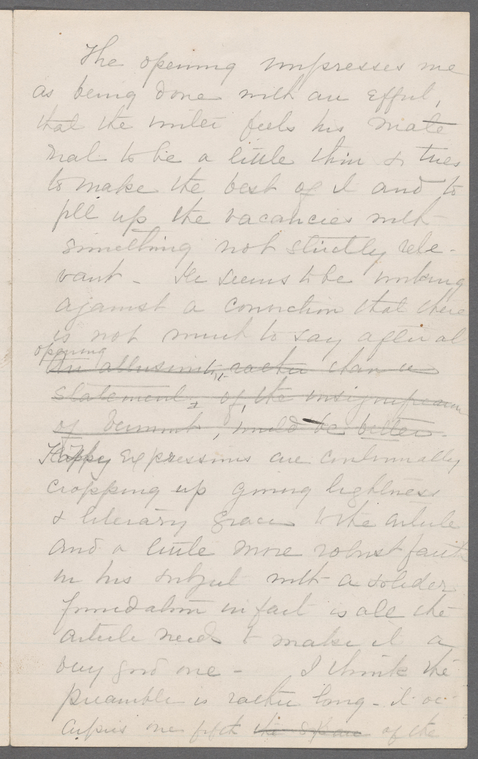 The opening impresses me
as being done with an effort,
that the writer feels his mate
rial to be a little thin & tries
to make the best of it and to
fill up the vacancies with
something not strictly rele-
vant - He seems to be working
against a conviction that there
is not much to say after all
opening
An allusion to, rather than a
statement, of the insignificance
of, would be better.
Happy Expressions are continually
cropping up giving lightness
& literary grace to the article
and a little more robust faith
in his subject with a solider
foundation in fact is all the
article needs to make it a
very good one - I think the
preamble is rather long - it oc-
cupies one fifth the space of the